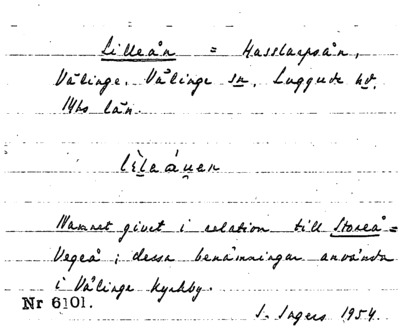 Lilleån = Hasslarpsån,
Välinge. Välinge sn, Luggude hd,
Mhs län.
lìlaáuen
Namnet givet i relation till Storeå =
Vegeå; dessa benämningar använda
i Välinge kyrkby.
Nr 6101.
I. Ingers 1954.